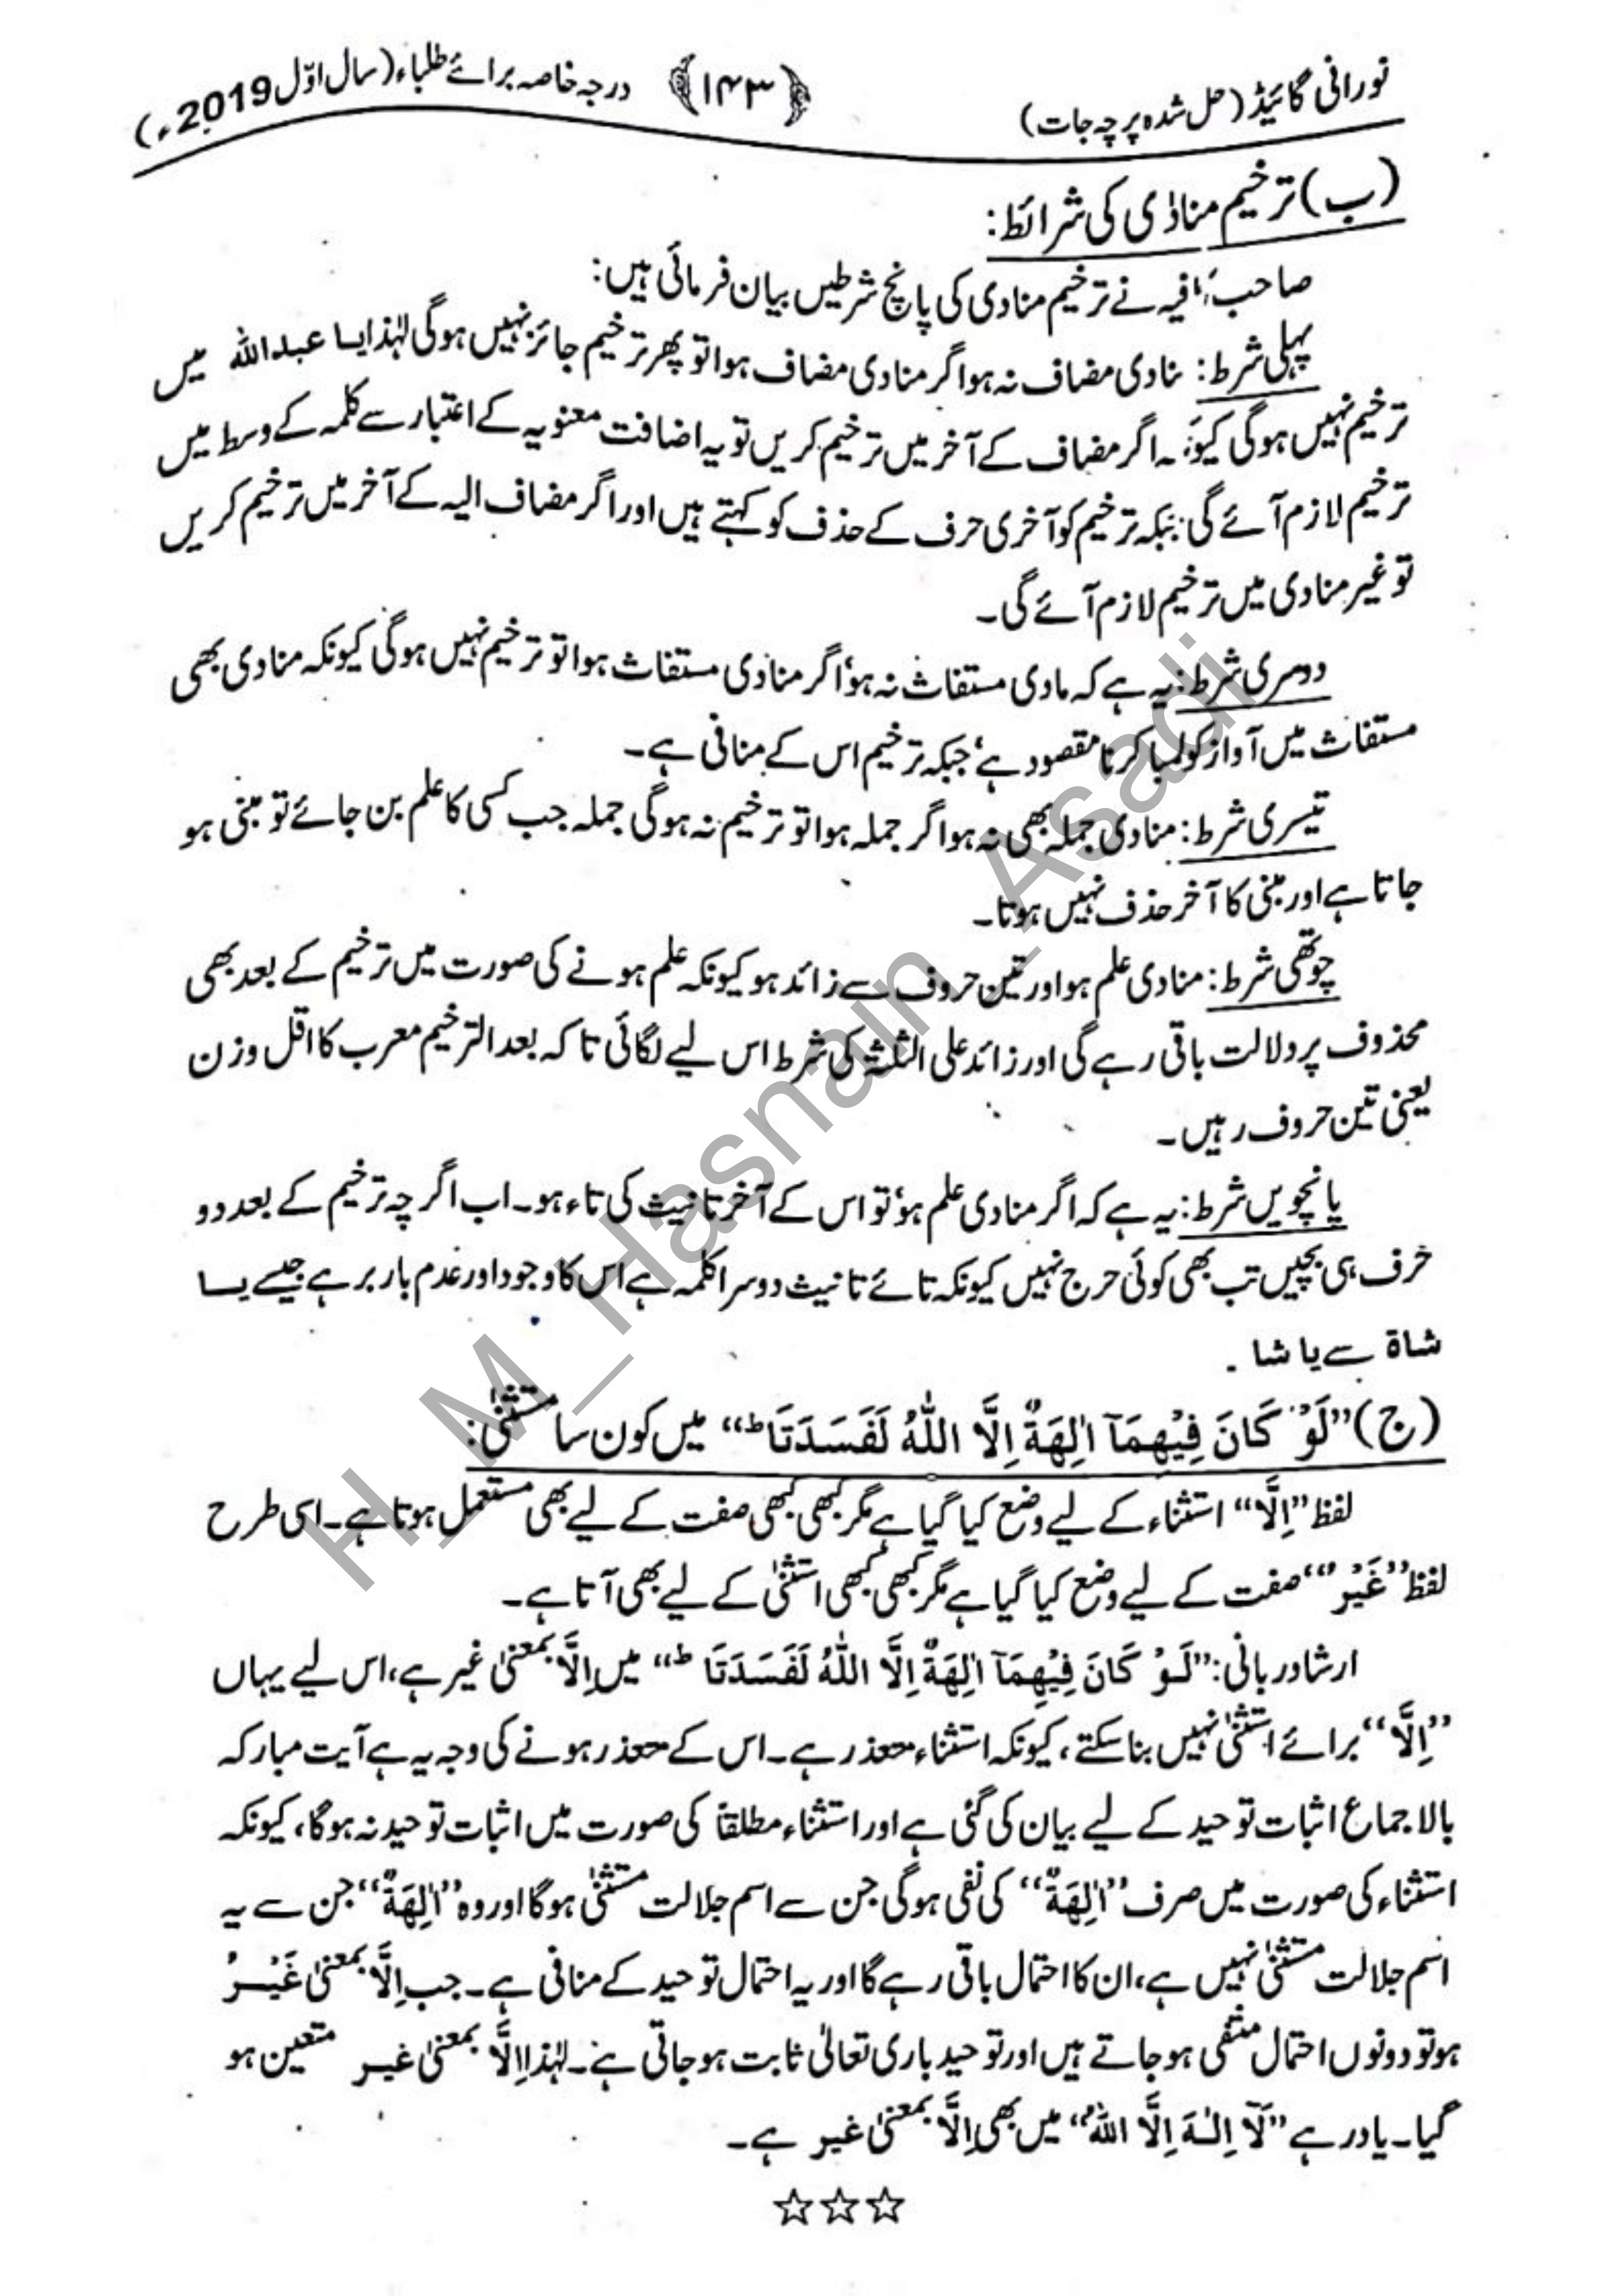 نورانی گائیڈ (حل شدہ پرچہ جات) ﴿۱۴۳﴾ درجہ خاصہ برائے طلباء (سال اوّل 2019ء)
(ب) ترخیم منادٰی کی شرائط:
صاحب کافیہ نے ترخیم منادی کی پانچ شرطیں بیان فرمائی ہیں:
پہلی شرط: منادی مضاف نہ ہو اگر منادی مضاف ہوا تو پھر ترخیم جائز نہیں ہوگی لہٰذا یا عبد اللہ میں
ترخیم نہیں ہوگی کیونکہ اگر مضاف کے آخر میں ترخیم کریں تو یہ اضافت معنویہ کے اعتبار سے کلمہ کے وسط میں
ترخیم لازم آئے گی جبکہ ترخیم کو آخری حرف کے حذف کو کہتے ہیں اور اگر مضاف الیہ کے آخر میں ترخیم کریں
تو غیر منادی میں ترخیم لازم آئے گی۔
دوسری شرط: یہ ہے کہ مادی مستغاث نہ ہو، اگر منادی مستغاث ہوا تو ترخیم نہیں ہوگی کیونکہ منادی بھی
مستغاث میں آواز کو لمبا کرنا مقصود ہے، جبکہ ترخیم اس کے منافی ہے۔
تیسری شرط: منادی جملہ بھی نہ ہو اگر جملہ ہوا تو ترخیم نہ ہوگی جملہ جب کسی کا علم بن جائے تو مبنی ہو
جاتا ہے اور مبنی کا آخر حذف نہیں ہوتا۔
چوتھی شرط: منادی علم ہو اور تین حروف سے زائد ہو کیونکہ علم ہونے کی صورت میں ترخیم کے بعد بھی
محذوف پر دلالت باقی رہے گی اور زائد علی الثلٰثۃ کی شرط اس لیے لگائی تاکہ بعد الترخیم معرب کا اقل وزن
یعنی تین حروف رہیں۔
پانچویں شرط: یہ ہے کہ اگر منادی علم ہو، تو اس کے آخر تانیث کی تاء ہو۔ اب اگرچہ ترخیم کے بعد دو
حرف ہی بچیں تب بھی کوئی حرج نہیں کیونکہ تائے تانیث دوسرا کلمہ ہے اس کا وجود اور عدم بار بر ہے جیسے یا
شاۃ سے یا شا ۔
(ج) ”لَوْ كَانَ فِيْهِمَآ اٰلِهَةٌ اِلَّا اللّٰهُ لَفَسَدَتَا ؕ“ میں کون سا مستثنیٰ:
لفظ ”اِلَّا“ استثناء کے لیے وضع کیا گیا ہے مگر کبھی کبھی صفت کے لیے بھی مستعمل ہوتا ہے۔ اسی طرح
لفظ ”غَیْر“ صفت کے لیے وضع کیا گیا ہے مگر کبھی کبھی استثنیٰ کے لیے بھی آتا ہے۔
ارشاد ربانی: ”لَوْ كَانَ فِيْهِمَآ اٰلِهَةٌ اِلَّا اللّٰهُ لَفَسَدَتَا ؕ“ میں اِلَّا بمعنیٰ غیر ہے، اس لیے یہاں
”اِلَّا“ برائے استثنیٰ نہیں بنا سکتے، کیونکہ استثناء متعذر ہے۔ اس کے متعذر ہونے کی وجہ یہ ہے آیت مبارکہ
بالاجماع اثبات توحید کے لیے بیان کی گئی ہے اور استثناء مطلقاً کی صورت میں اثبات توحید نہ ہوگا، کیونکہ
استثناء کی صورت میں صرف ”اٰلِهَةٌ“ کی نفی ہوگی جن سے اسم جلالت مستثنیٰ ہوگا اور وہ ”اٰلِهَةٌ“ جن سے یہ
اسم جلالت مستثنیٰ نہیں ہے، ان کا احتمال باقی رہے گا اور یہ احتمال توحید کے منافی ہے۔ جب اِلَّا بمعنیٰ غَیْرُ
ہو تو دونوں احتمال منتفی ہو جاتے ہیں اور توحید باری تعالیٰ ثابت ہو جاتی ہے۔ لہٰذا اِلَّا بمعنیٰ غیر متعین ہو
گیا۔ یاد رہے ”لَآ اِلٰـهَ اِلَّا اللّٰهُ“ میں بھی اِلَّا بمعنیٰ غیر ہے۔
☆☆☆
H_M_Hasnain_Asadi